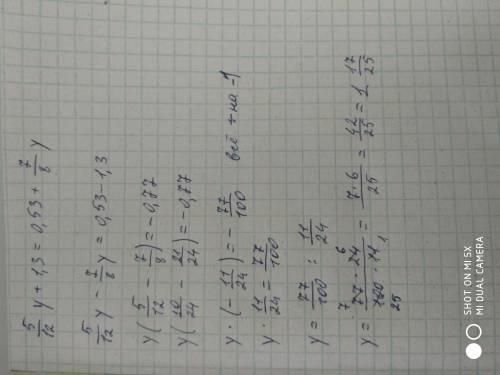 5/12 y + 1,3 = 0,53 + 7/8 y
5/12 y - 7/8 y = 0,53 - 1,3
y (5/12 - 7/8) = -0,77
y (10/24 - 21/24) = -0,77
y · (- 11/24) = - 77/100 всё * на -1
y · 11/24 = 77/100
y = 77/100 : 11/24
y = 77 · 24 / 100 · 11 = 7·6/25 = 42/25 = 1 17/25
7 6
25 1
SHOT ON MI 5X
MI DUAL CAMERA